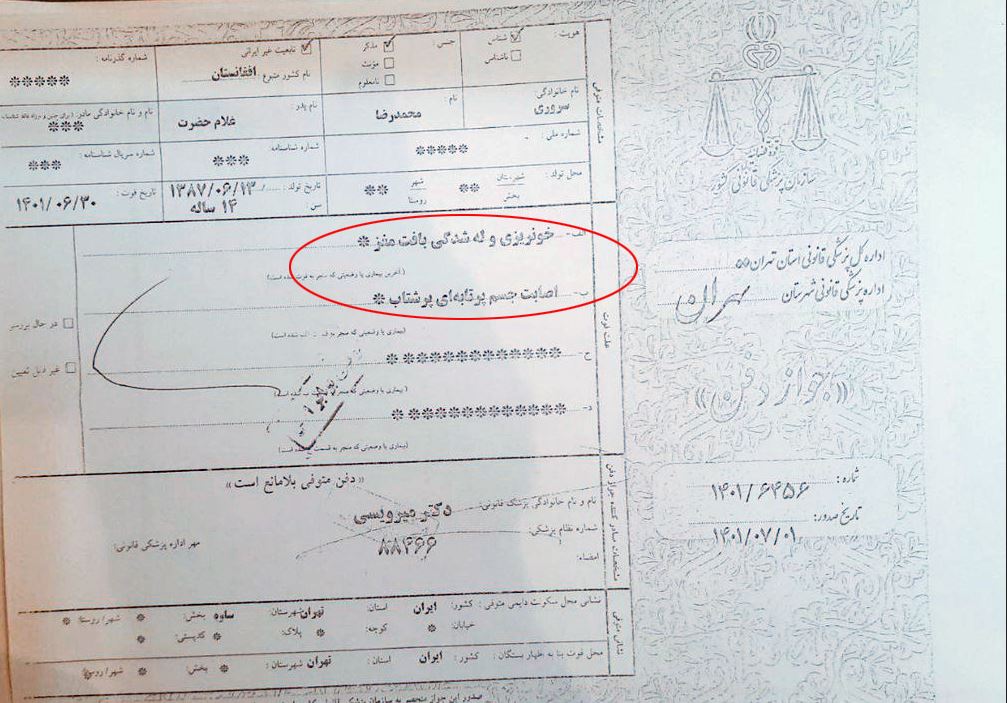 قوه قضائیه
سازمان پزشکی قانونی کشور
اداره کل پزشکی قانونی استان تهران **
اداره پزشکی قانونی شهرستان تهران
«جواز دفن»
شماره: ۱۴۰۱/۶۴۵۶
تاریخ صدور:
۱۴۰۱/۰۷/۰۱
مشخصات متوفی
هویت: شناس ناشناس جنس: مذکر مؤنث نامعلوم تابعیت غیر ایرانی نام کشور متبوع افغانستان شماره گذرنامه: *****
نام خانوادگی سروری نام: محمدرضا نام پدر: غلام حضرت نام و نام خانوادگی مادر: ***
شماره ملی: ***** شماره شناسنامه: *** شماره سریال شناسنامه: ***
محل تولد: شهرستان بخش ** شهر روستا ** تاریخ تولد: ۱۳۸۷/۰۶/۱۳ سن: ۱۴ ساله تاریخ فوت: ۱۴۰۱/۰۶/۳۰
علت فوت
الف- خونریزی و له شدگی بافت مغز *
(آخرین بیماری یا وضعیتی که منجر به فوت شده است)
ب- اصابت جسم پرتابه‌ای پرشتاب *
(بیماری یا وضعیتی که منجر به قسمت الف شده است)
ج- ************* *
(بیماری یا وضعیتی که منجر به قسمت ب شده است)
د- ************ *
(بیماری یا وضعیتی که منجر به قسمت شده است)
در حال بررسی
غیر قابل تعیین
مشخصات صادر کننده جواز دفن
« دفن متوفی بلامانع است »
نام و نام خانوادگی پزشک قانونی: دکتر میرویسی
شماره نظام پزشکی: ۸۸۴۶۶
امضاء: مهر اداره پزشکی قانونی:
نشانی متوفی
نشانی محل سکونت دایمی متوفی: کشور: ایران استان: تهران شهرستان: ساوه بخش: * شهر/روستا: *
خیابان: * کوچه: * پلاک: * کدپستی: *
محل فوت بنا به اظهار بستگان: کشور: ایران استان: تهران شهرستان: * بخش: * شهر/روستا: *
صدور این جواز منحصر به سازمان پزشکی قانونی